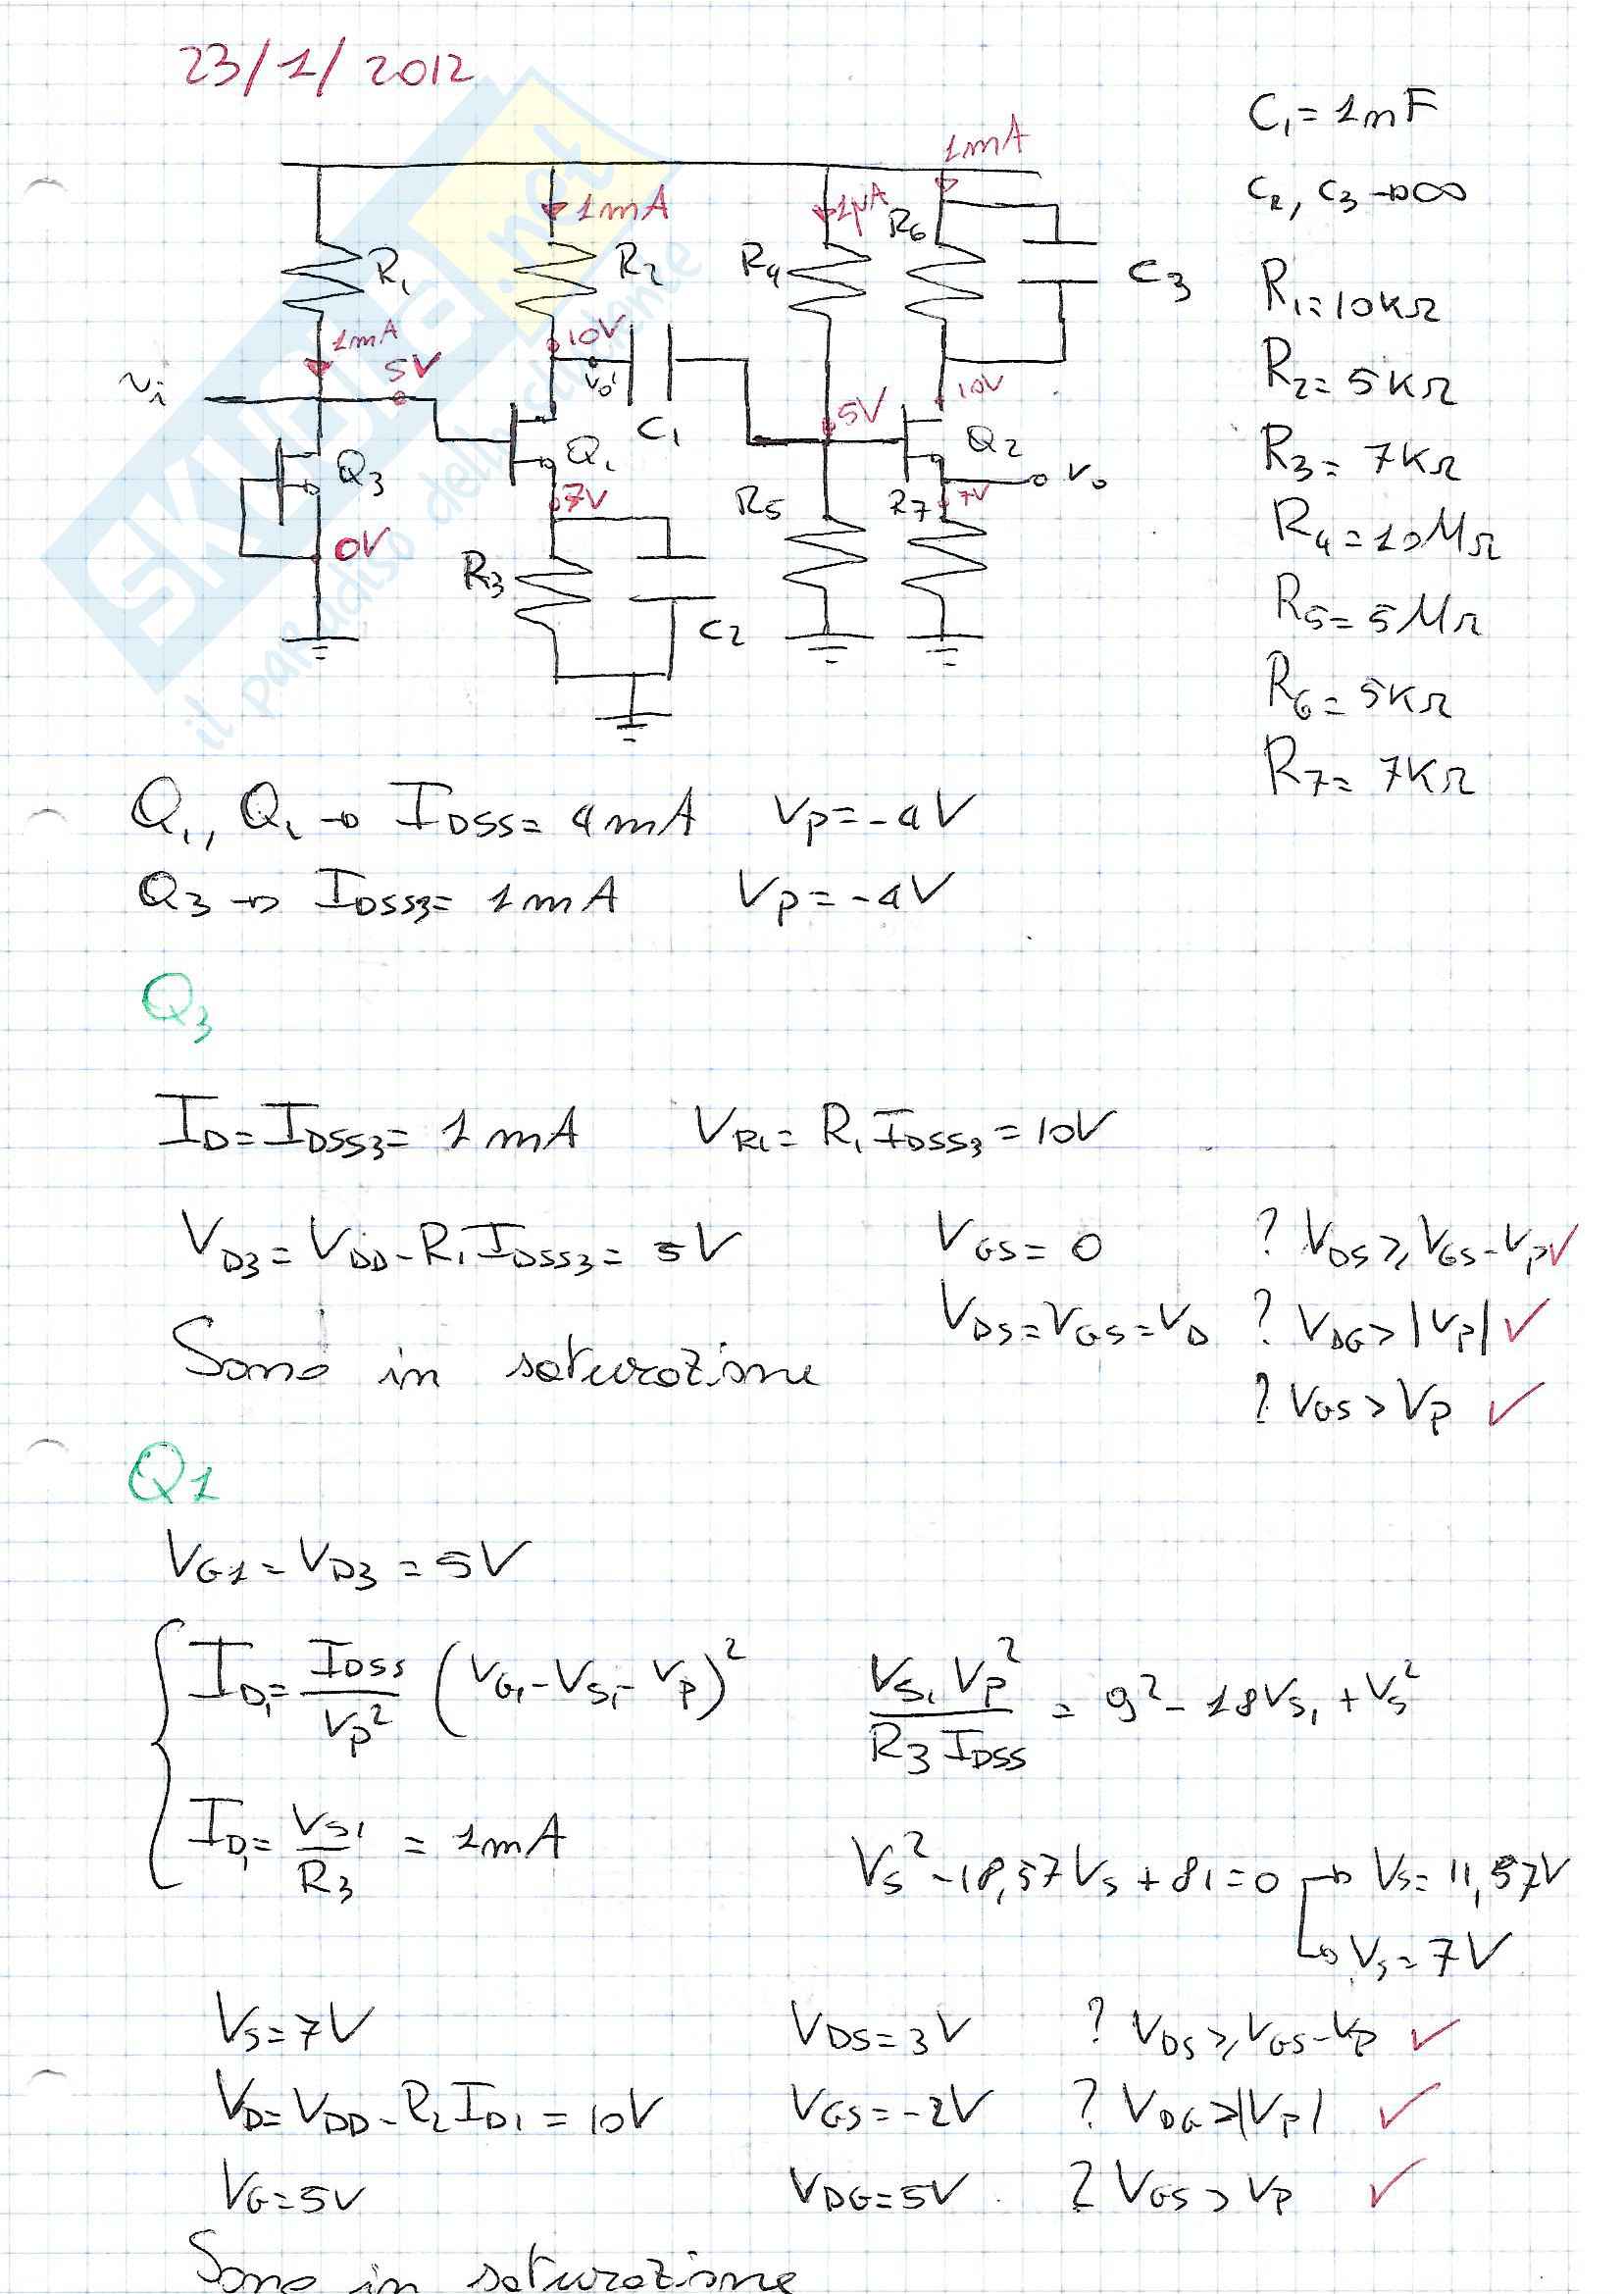 23/1/2012
C₁ = 1nF
C₂, C₃ → ∞
R₁ = 10KΩ
R₂ = 5KΩ
R₃ = 7KΩ
R₄ = 10MΩ
R₅ = 5MΩ
R₆ = 5KΩ
R₇ = 7KΩ
1mA
1mA 1μA R₆
R₁ R₂ R₄ C₃
1mA 10V
vi 5V vo' C₁ 5V 10V
Q₃ Q₁ Q₂ vo
0V 7V R₅ R₇ 7V
R₃ C₂
SKUOLA.net
il paradiso dello studente
Q₁, Q₂ → IDSS = 4mA Vp = -4V
Q₃ → IDSS3 = 1mA Vp = -4V
Q₃
ID = IDSS3 = 1mA VR1 = R₁ IDSS3 = 10V
VD3 = VDD - R₁ IDSS3 = 5V VGS = 0 ? VDS ≥ VGS - Vp ✓
VDS = VGS = VD ? VDG > |Vp| ✓
Sono in saturazione
? VGS > Vp ✓
Q1
VG1 = VD3 = 5V
ID1 = IDSS/Vp² (VG1 - VS1 - Vp)² VS1 Vp²/(R3 IDSS) = 9² - 18VS1 + VS²
ID1 = VS1/R3 = 1mA VS² - 18,57VS + 81 = 0 → VS = 11,57V
→ VS = 7V
VS = 7V VDS = 3V ? VDS ≥ VGS - Vp ✓
VD = VDD - R2 ID1 = 10V VGS = -2V ? VDG > |Vp| ✓
VG = 5V VDG = 5V ? VGS > Vp ✓
Sono in saturazione